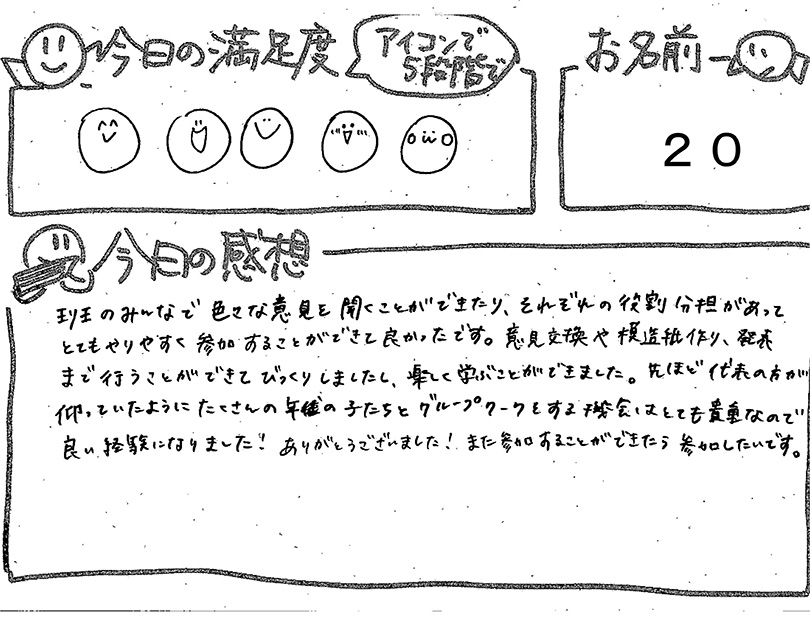 今日の満足度
アイコンで
5段階で
お名前
２０
今日の感想
班のみんなで色々な意見を聞くことができたり、それぞれの役割分担があって
とてもやりやすく参加することができて良かったです。意見交換や模造紙作り、発表
まで行うことができてびっくりしましたし、楽しく学ぶことができました。先ほど代表の方が
仰っていたようにたくさんの年代の子たちとグループワークをする機会はとても貴重なので
良い経験になりました！ありがとうございました！また参加することができたら参加したいです。